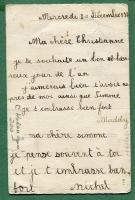 Mercredi 20 Décembre
Ma chère Christianne
je te souhaite un bon et heu
reux jour de l'an
j'aimerais bien t'avoir au
près de moi ainsi que Simone
je t'embrasse bien fort
ma chère simone
je pense souvent à toi
et je t'embrasse bien
fort Michel